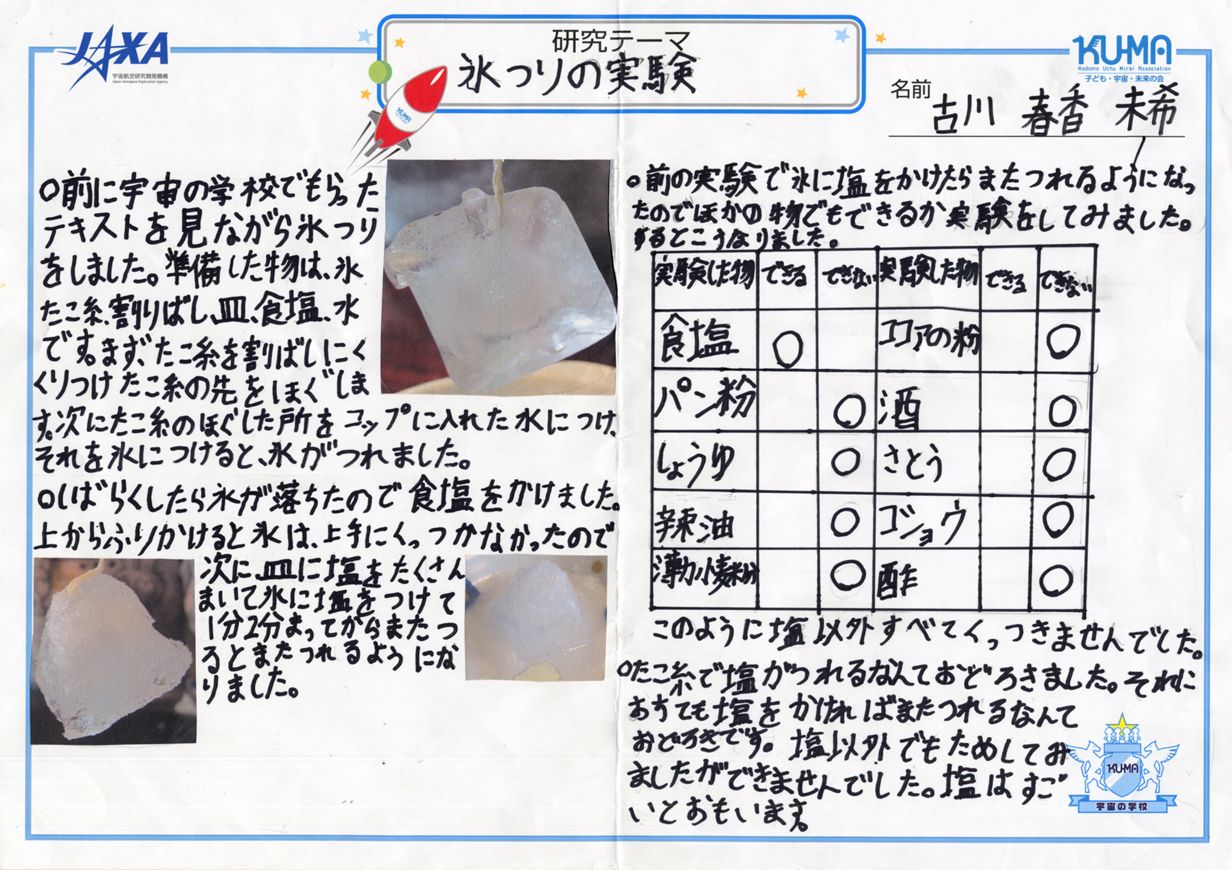 JAXA
宇宙航空研究開発機構
Japan Aerospace Exploration Agency
研究テーマ
氷つりの実験
KUMA
KU-MA
Kodomo Uchu Mirai Association
子ども・宇宙・未来の会
名前
古川 春香 未希
○前に宇宙の学校でもらった
テキストを見ながら氷つり
をしました。準備した物は、氷
たこ糸、割りばし、皿、食塩、水
です。まず、たこ糸を割りばしにく
くりつけたこ糸の先をほぐしま
す。次にたこ糸のほぐした所をコップに入れた水につけ、
それを氷につけると、氷がつれました。
○しばらくしたら氷が落ちたので食塩をかけました。
上からふりかけると氷は、上手にくっつかなかったので
次に、皿に塩をたくさん
まいて氷に塩をつけて
1分2分まってからまたつ
るとまたつれるようにな
りました。
○前の実験で氷に塩をかけたらまたつれるようになっ
たのでほかの物でもできるか実験をしてみました。
するとこうなりました。
実験した物 できる できない 実験した物 できる できない
食塩 ○ ココアの粉 ○
パン粉 ○ 酒 ○
しょうゆ ○ さとう ○
辣油 ○ コショウ ○
薄力小麦粉 ○ 酢 ○
このように塩以外すべてくっつきませんでした。
○たこ糸で塩がつれるなんておどろきました。それに
おちても塩をかければまたつれるなんて
おどろきです。塩以外でもためしてみ
ましたができませんでした。塩はすご
いとおもいます。
KU-MA
宇宙の学校